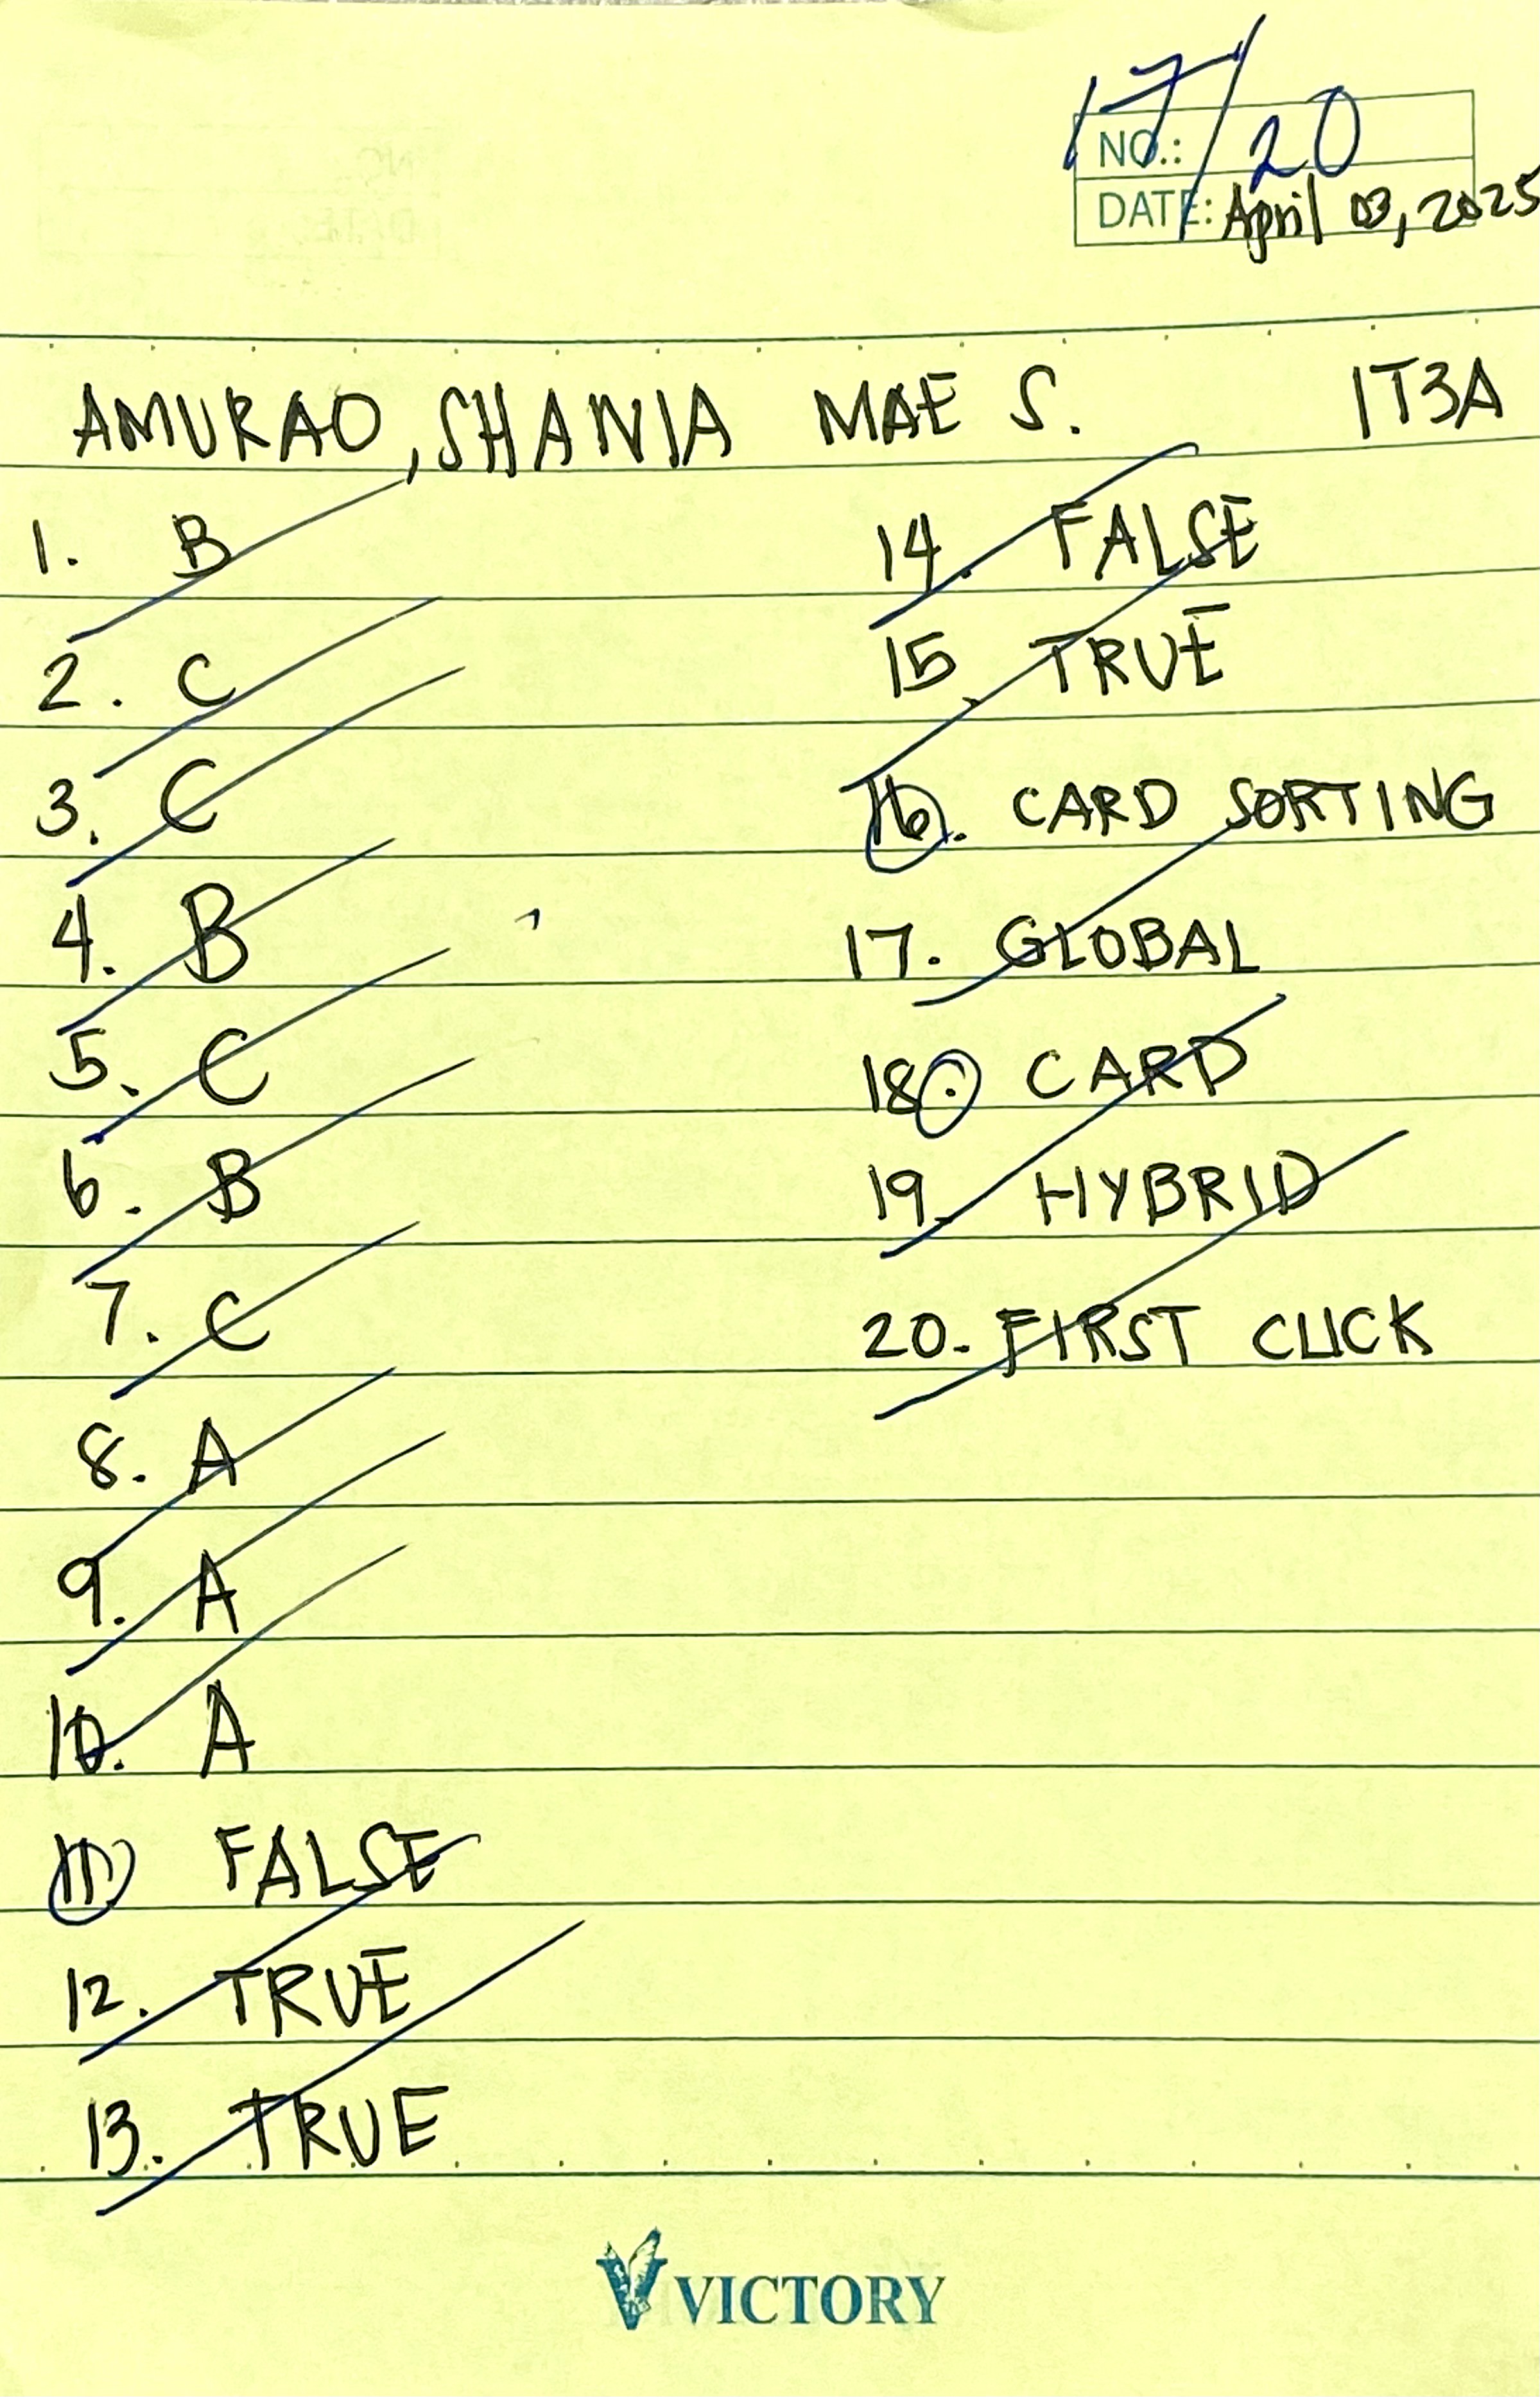 17/20
NO.:
DATE: April 03, 2025
AMURAO, SHANIA MAE S. IT3A
1. B
2. C
3. C
4. B
5. C
6. B
7. C
8. A
9. A
10. A
11. FALSE
12. TRUE
13. TRUE
14. FALSE
15. TRUE
16. CARD SORTING
17. GLOBAL
18. CARD
19. HYBRID
20. FIRST CLICK
VICTORY